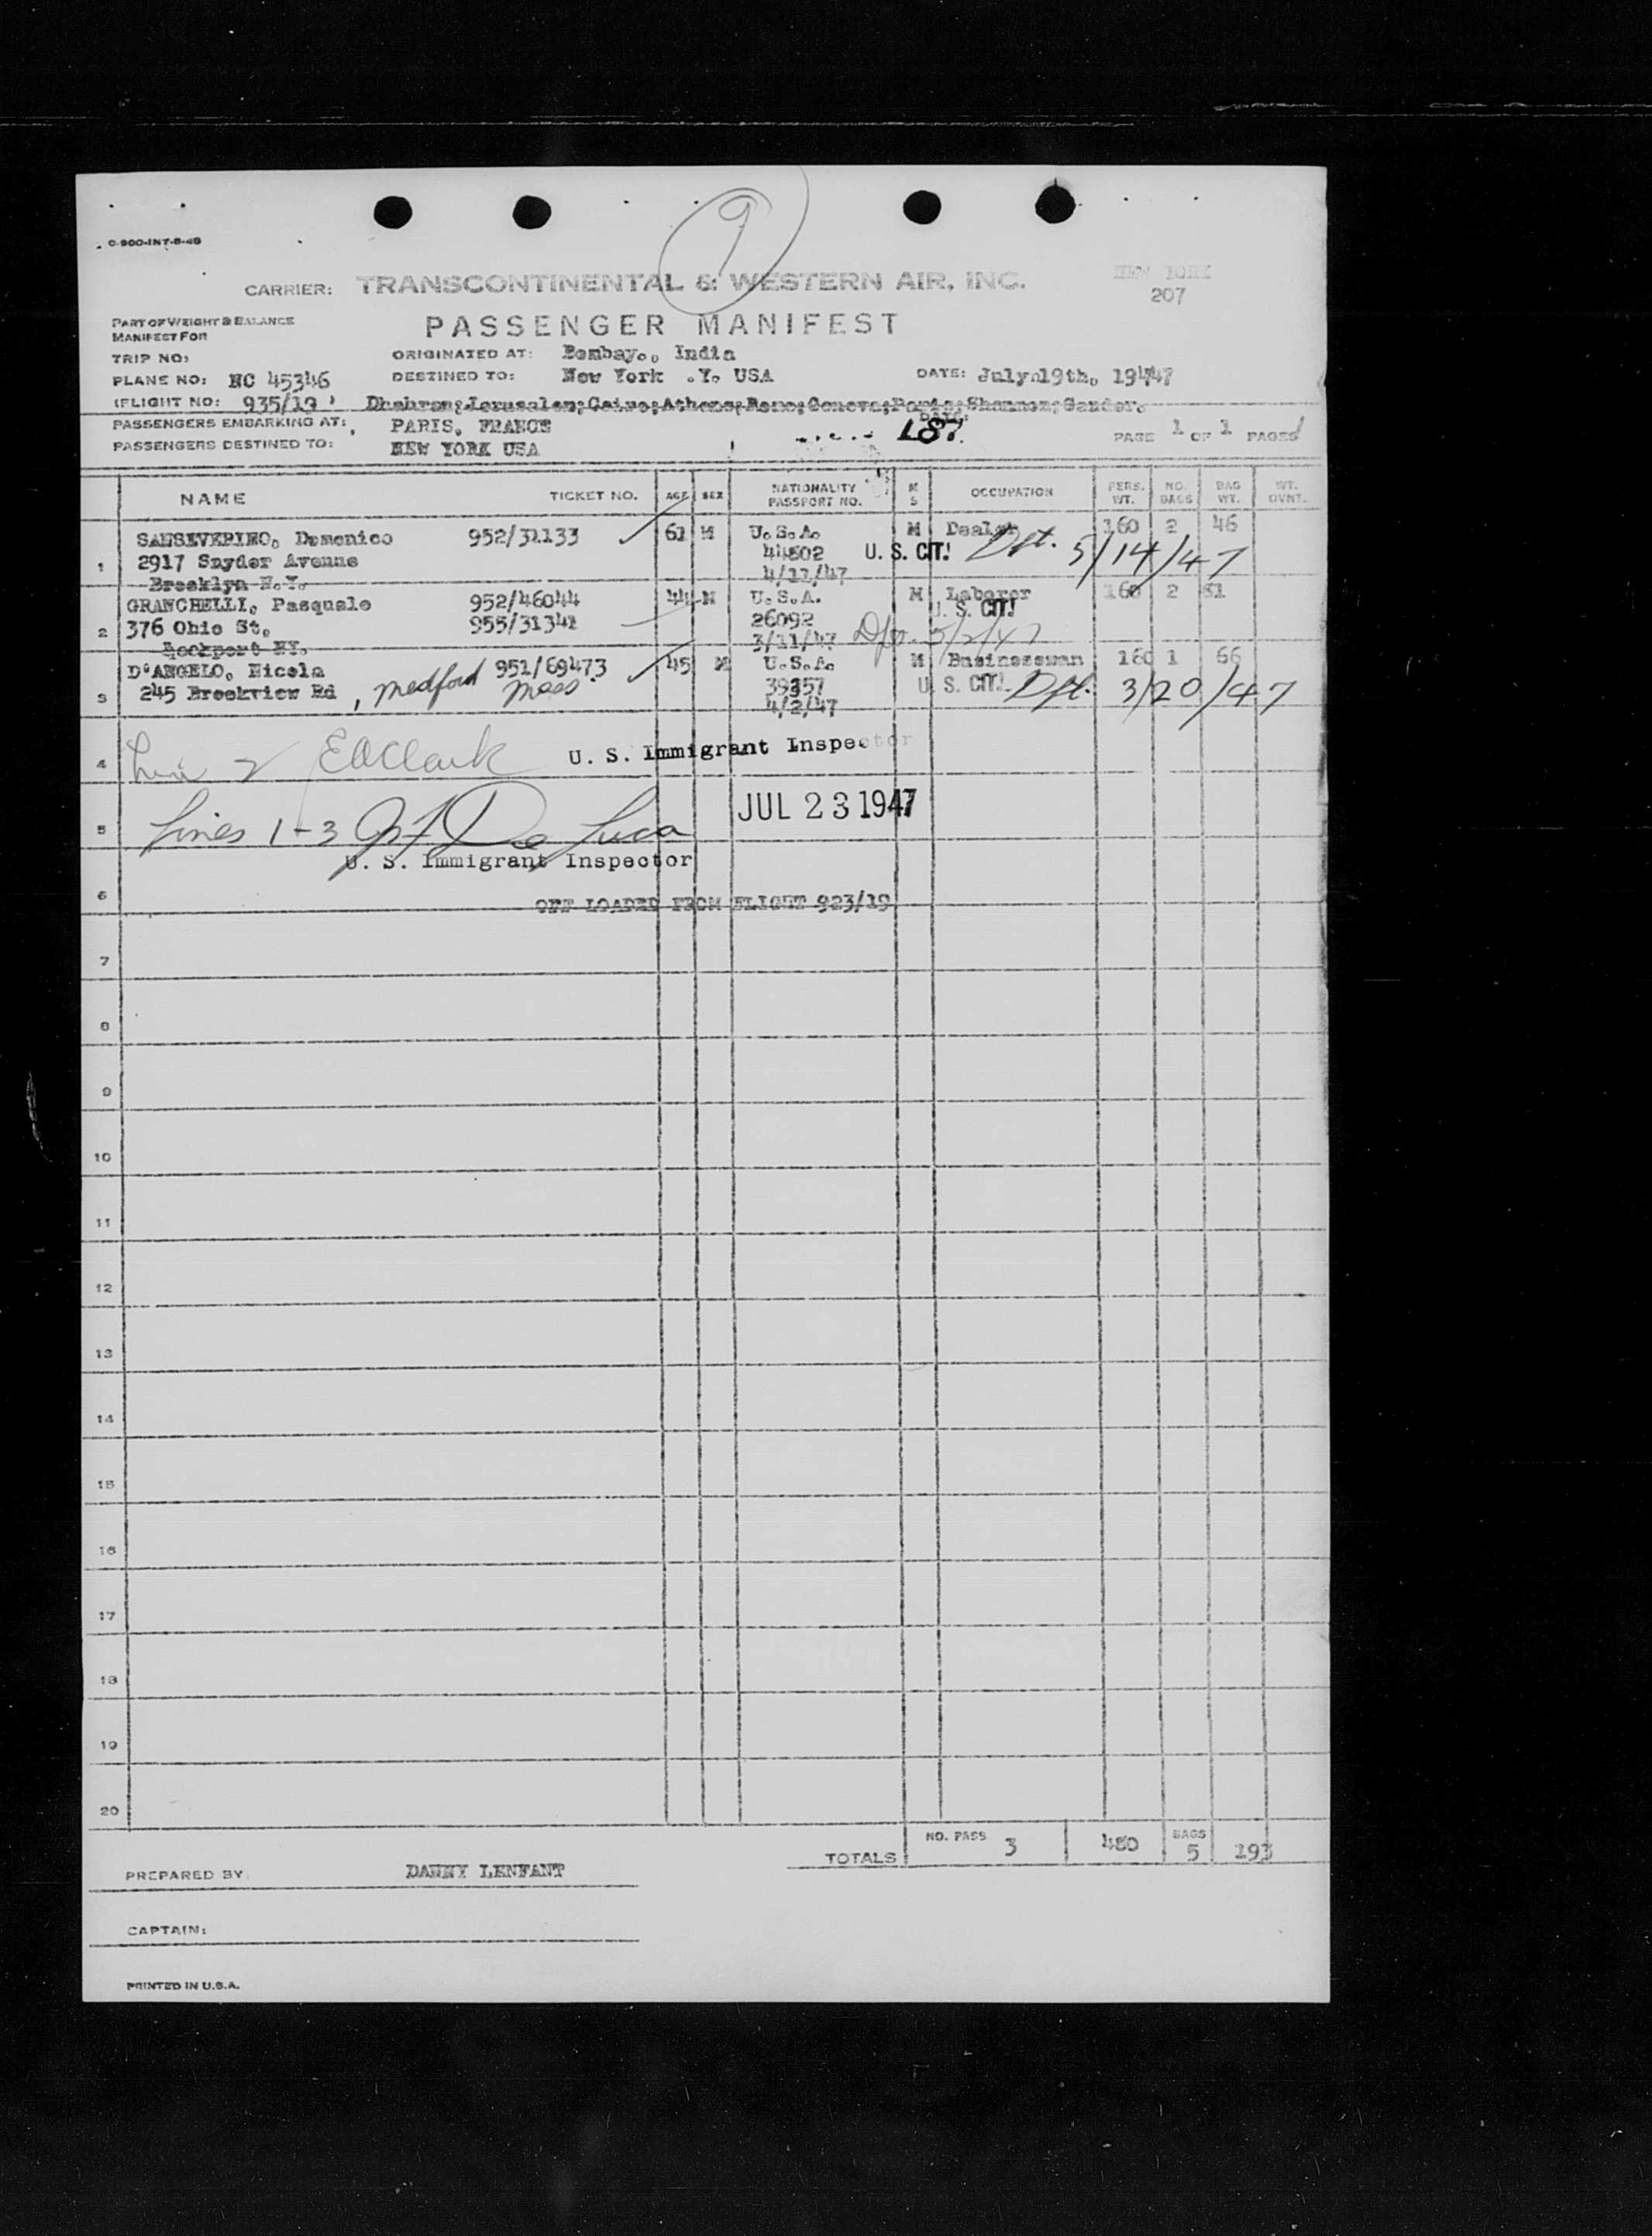 9
O-900-INT-8-46
CARRIER: TRANSCONTINENTAL & WESTERN AIR, INC.
NEW YORK
207
PART OF WEIGHT & BALANCE
MANIFEST FOR
PASSENGER MANIFEST
TRIP NO:
ORIGINATED AT: Bombay., India
PLANE NO: NC 45346
DESTINED TO: New York .Y. USA
DATE: July 19th, 1947
(FLIGHT NO: 935/19 )
Dhahran;Jerusalem;Cairo;Athens;Rome;Geneva;Paris;Shannon;Gander.
PASSENGERS EMBARKING AT: PARIS, FRANCE
187
PAGE 1 OF 1 PAGES
PASSENGERS DESTINED TO: NEW YORK USA
NAME TICKET NO. AGE SEX NATIONALITY PASSPORT NO. M S OCCUPATION PERS. WT. NO. BAGS BAG WT. WT. OVNT.
SANSEVERINO, Domenico 952/31133 61 M U.S.A. M Dealer 160 2 46
1 2917 Snyder Avenue 44802 U. S. CIT! Dpt. 5/14/47
Brooklyn N.Y. 4/17/47
GRANCHELLI, Pasquale 952/46044 44 M U.S.A. M Laborer 160 2 81
2 376 Ohio St. 955/31341 26092 U. S. CIT!
Lockport NY. 3/11/47 Dpt. 5/2/47
D'ANGELO, Nicola 951/69473 45 M U.S.A. M Businessman 160 1 66
3 245 Brookview Rd , Medford Mass 39357 U. S. CIT! Dpt. 3/20/47
4/2/47
4 Line 2 EO Clark U. S. Immigrant Inspector
JUL 23 1947
5 Lines 1-3 De Luca
U. S. Immigrant Inspector
6 OFF LOADED FROM FLIGHT 923/19
7
8
9
10
11
12
13
14
15
16
17
18
19
20
TOTALS NO. PASS 3 480 BAGS 5 193
PREPARED BY: DANNY LENFANT
CAPTAIN:
PRINTED IN U.S.A.